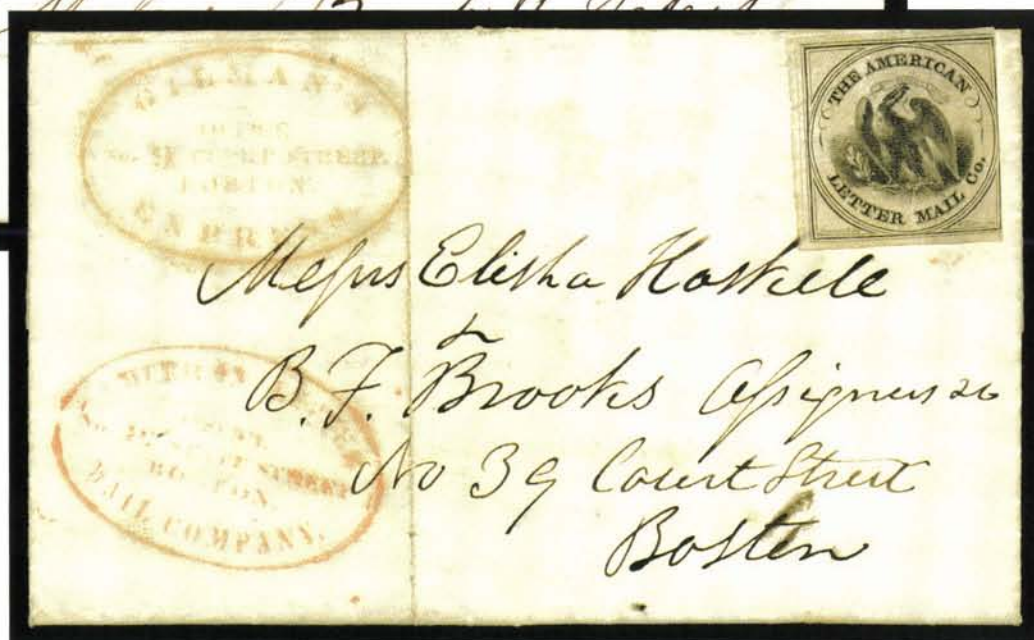 GILMAN'S
COURT STREET
BOSTON
EXPRESS
THE AMERICAN
LETTER MAIL Co.
Messrs Elisha Haskell
&
B. F. Brooks Assignees &c
No 39 Court Street
Boston
AMERICAN LETTER
STREET
BOSTON,
MAIL COMPANY.